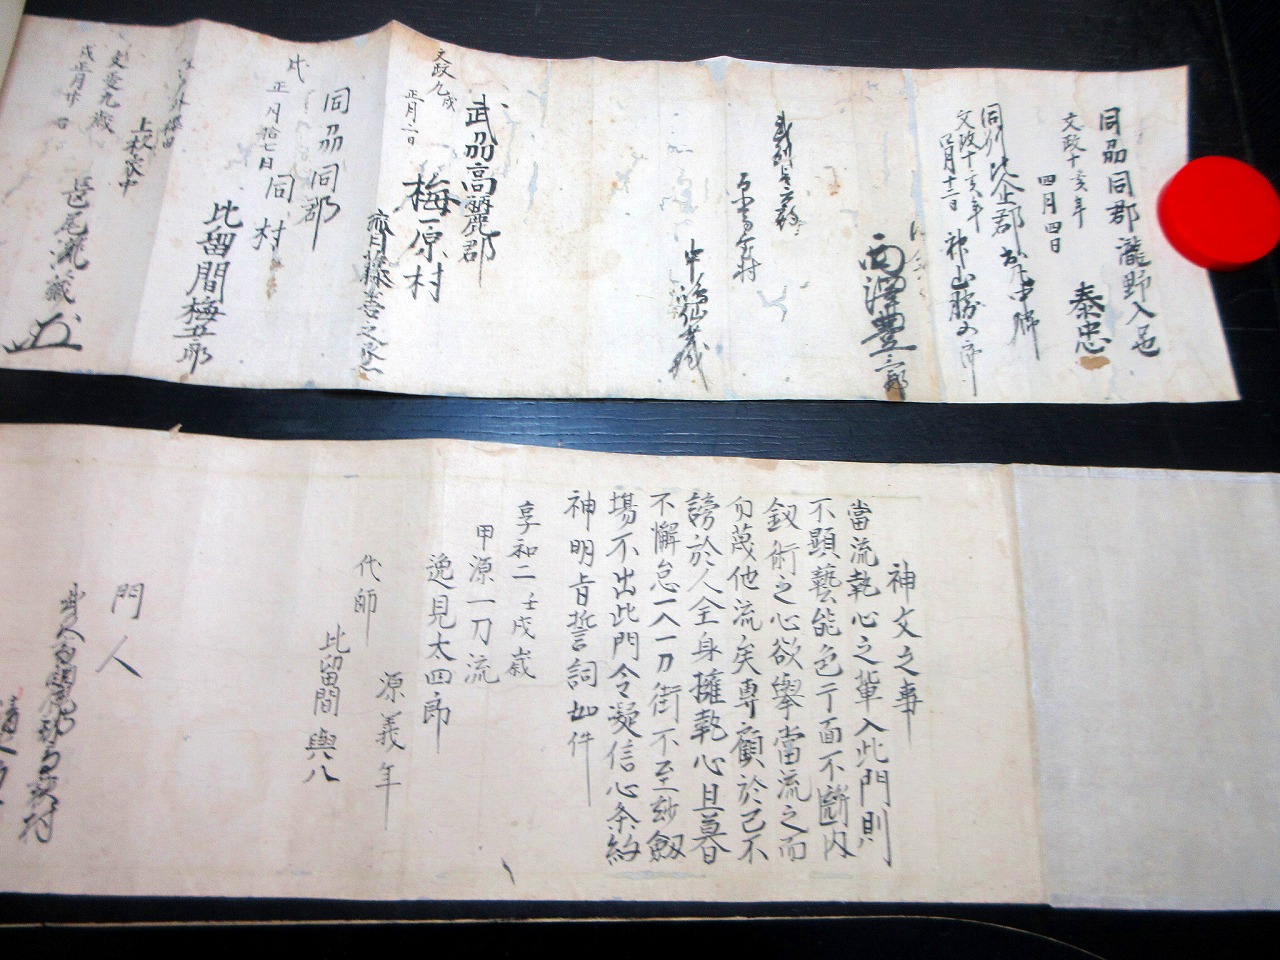 同刕同郡瀧野入邑
文政十亥年
四月四日
秦忠
同刕比企郡
文政十亥年
四月十二日
神山勝五郎
西澤豊三郎
中嶋仙蔵
武刕高麗郡
文政九戌
正月二日
梅原村
齊藤喜之丞
同刕同郡
正月拾七日
同村
比留間梅五郎
文政九歳
戌正月廿
上杉家中
長尾瀧蔵
神文之事
當流執心之輩入此門則
不顕藝能色于面不斷内
釼術之心欲擧當流之而
勿蔑他流矣専顧於己不
謗於人全身擁執心旦暮
不懈怠一入一刀街不至玅劔
場不出此門令凝信心条約
神明旨誓詞如件
享和二壬戌歳
甲源一刀流
逸見太四郎
源義年
代師
比留間與八
門人